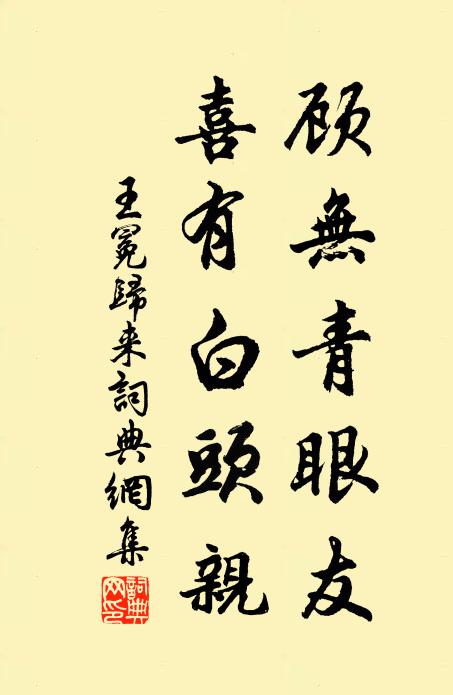 顾無青眼友
喜有白頭親
王冕歸来詞典網集
詞典网印